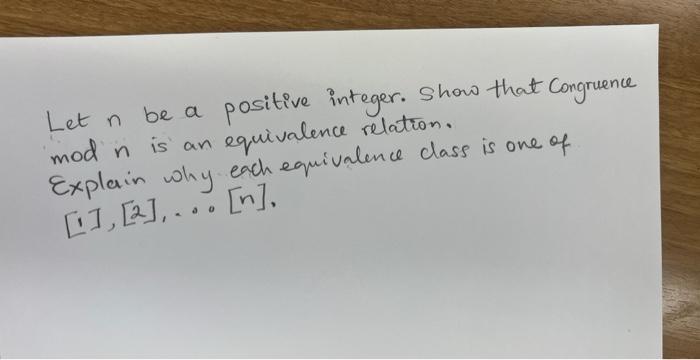 Let n be a positive integer. Show that Congruence
mod n is an equivalence relation.
Explain why each equivalence class is one of
[1], [2], . . . [n].